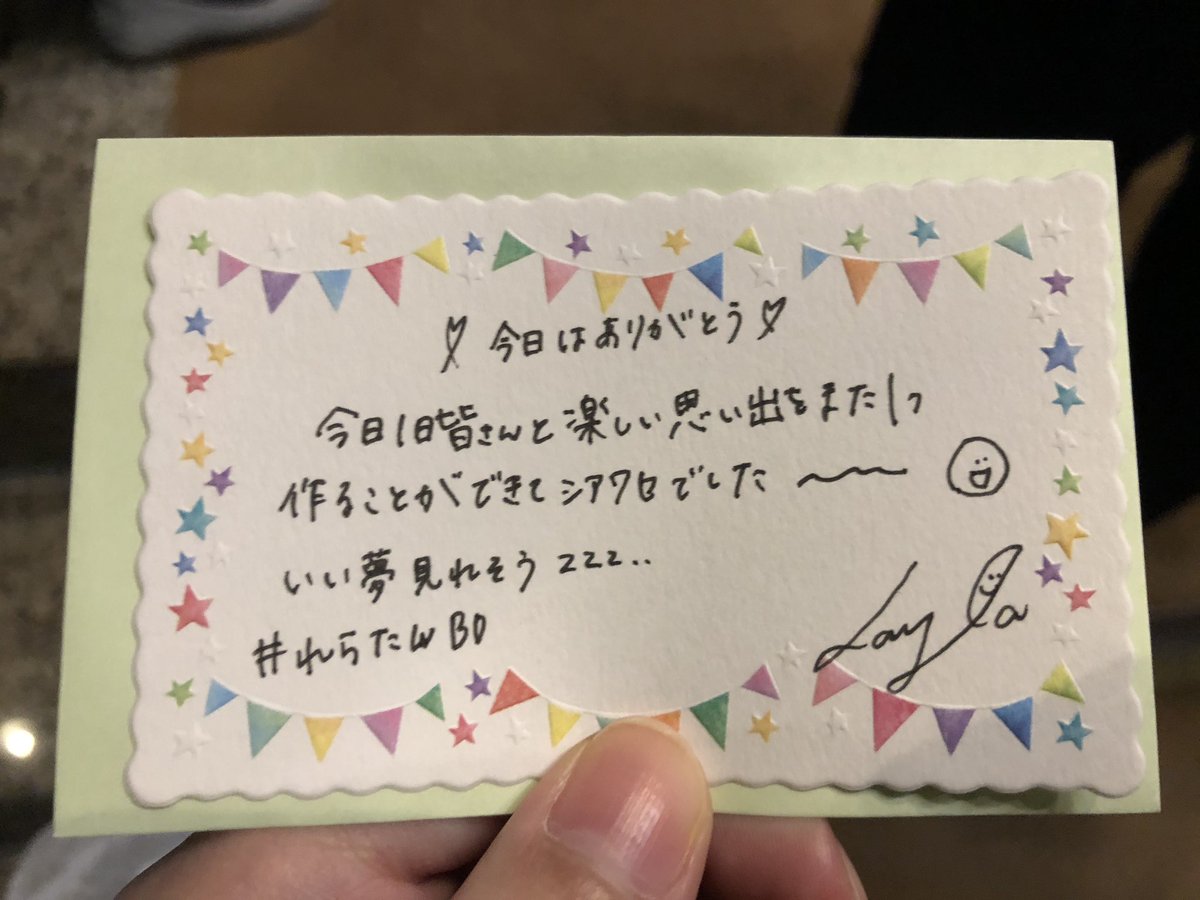 ♡今日はありがとう♡
今日1日皆さんと楽しい思い出をまた1つ
作ることができてシアワセでした〜〜
いい夢見れそうzzz..
#れらたんBD
Layla